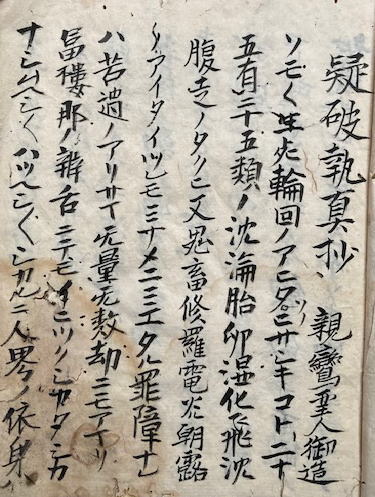 疑破執真抄 親鸞聖人御造
ソモ〱生死輪回ノアヒタ コト二十
五有三十五類ノ沈淪胎卵湿化飛沈
腹走ノタクヒ又鬼畜修羅電光朝露
ノアイタイツレモ ミエタル罪障ナレ
ハ苦 ノアリサマ无量无数劫ニモアマリ
冨樓那ノ辨舌ニテモ カタシカ
ナシムヘシ〱ハツヘシ〱シカルニ人界ノ依身